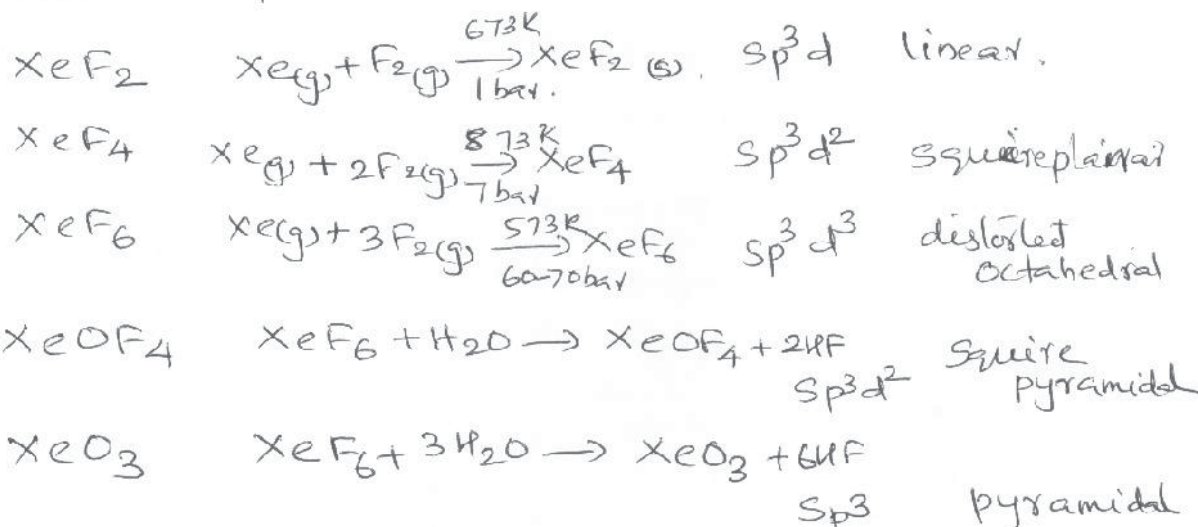 XeF₂ Xe(g) + F₂(g) 673K → 1 bar. XeF₂ (s). Sp³d linear.
XeF₄ Xe(g) + 2F₂(g) 873K → 7 bar XeF₄ Sp³d² squireplanar
XeF₆ Xe(g) + 3F₂(g) 573K → 60-70bar XeF₆ Sp³d³ distorted octahedral
XeOF₄ XeF₆ + H₂O → XeOF₄ + 2HF Sp³d² Squire pyramidal
XeO₃ XeF₆ + 3H₂O → XeO₃ + 6HF Sp3 pyramidal